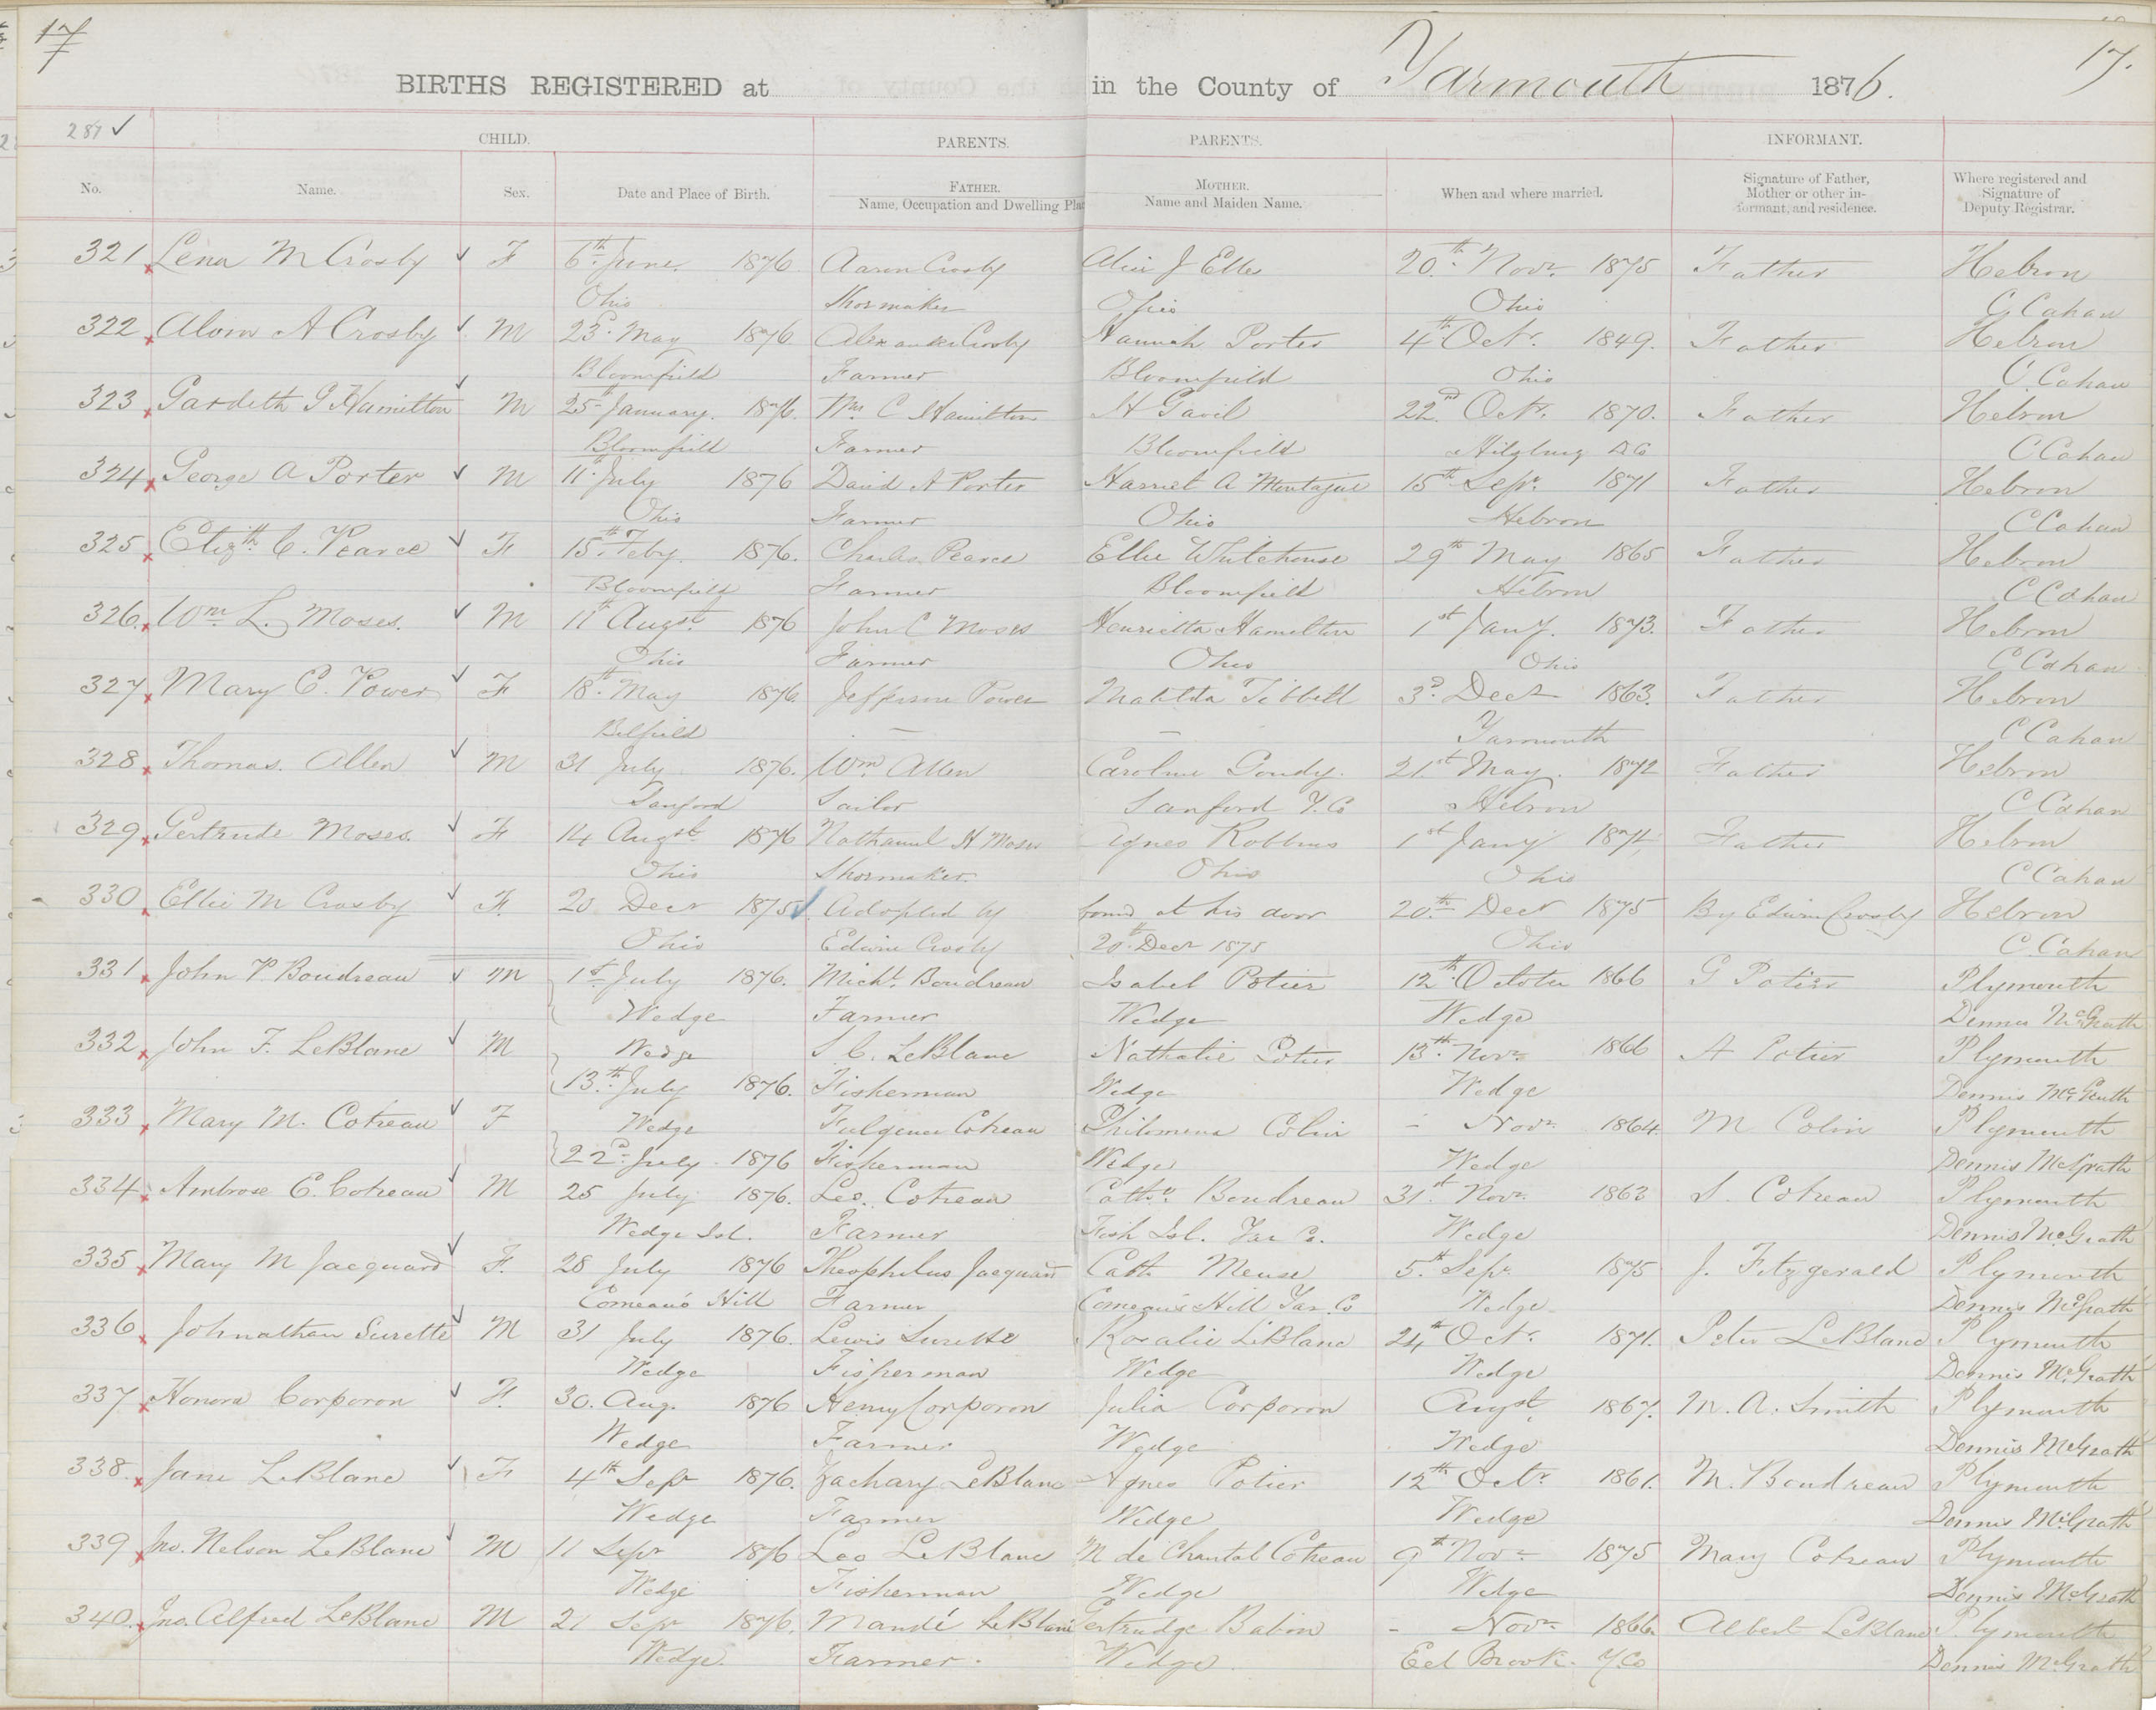 17
17.
BIRTHS REGISTERED at in the County of Yarmouth 1876.
287 ✓
CHILD. PARENTS. PARENTS. INFORMANT.
No. Name. Sex. Date and Place of Birth. FATHER. Name, Occupation and Dwelling Pla MOTHER. Name and Maiden Name. When and where married. Signature of Father, Mother or other informant, and residence. Where registered and Signature of Deputy Registrar.
321 Lena M Crosby F 6th June 1876 Aaron Crosby J 20th Novr 1875 Father Hebron
Ohio Shoemaker Ohio Ohio C Cahan
322 Alvin A Crosby M 23d May 1876 Alexander Crosby Hannah Porter 4th Octr. 1849. Father Hebron
Bloomfield Farmer Bloomfield Ohio C. Cahan
323 G Hamilton M 25th January. 1876. Wm C Hamilton H Gavil 22nd Octr. 1870. Father Hebron
Bloomfield Farmer Bloomfield D Co C Cahan
324 George A Porter M 11th July 1876 David A Porter Harriet A 15th Sepr. 1871 Father Hebron
Ohio Farmer Ohio Hebron C Cahan
325 Elizth C. Pearce F 15th Feby. 1876. Charles Pearce Ellie Whitehouse 29th May 1865 Father Hebron
Bloomfield Farmer Bloomfield Hebron C Cahan
326. Wm. L. Moses. M 11th Augst. 1876 John C Moses Henrietta Hamilton 1st Jany. 1873. Father Hebron
Ohio Farmer Ohio Ohio C Cahan
327 Mary E. Power F 18th May 1876. Jefferson Power Matilda Tibbett 3d. Decr 1863. Father Hebron
Belfield — — Yarmouth C Cahan
328 Thomas. Allen M 31 July 1876. Wm Allen Caroline Goudy. 21st May. 1872 Father Hebron
Sanford Sailor Sanford Y. Co Hebron C Cahan
329 Gertrude Moses. F 14 Augst 1876 Nathaniel H Moses Agnes Robbins 1st Jany 1874 Father Hebron
Ohio Shoemaker. Ohio Ohio C Cahan
330 Ellie M Crosby F. 20 Decr 1875 Adopted by found at his door 20th Decr 1875 By Edwin Crosby Hebron
Ohio Edwin Crosby 20th Decr 1875 Ohio C. Cahan
331 John P. Boudreau M 1st July 1876. Michl. Boudreau Isabel Potier 12th October 1866 G Potier Plymouth
Wedge Farmer Wedge Wedge Dennis McGrath
332 John F. LeBlanc M Wedge S. C. LeBlanc Nathalie Potier 13th Novr 1866 A Potier Plymouth
13th July 1876. Fisherman Wedge Wedge Dennis McGrath
333 Mary M. Cotreau F Wedge Fulgence Cotreau Philomena Colin - Novr 1864. M Colin Plymouth
22d July 1876 Fisherman Wedge Wedge Dennis McGrath
334 Ambrose E. Cotreau M 25 July 1876. Leo. Cotreau Cathe. Boudreau 31st Novr. 1863 S. Cotreau Plymouth
Wedge Isl. Farmer Fish Isl. Yar Co. Wedge Dennis McGrath
335 Mary M Jacquard F. 28 July 1876 Theophilus Jacquard Cath. Meuse 5th Sepr. 1875 J. Fitzgerald Plymouth
Comeau's Hill Farmer Comeau's Hill Yar. Co Wedge Dennis McGrath
336 Johnathan Surette M 31 July 1876. Lewis Surette Rosalie LeBlanc 24th Octr. 1871. Peter LeBlanc Plymouth
Wedge Fisherman Wedge Wedge Dennis McGrath
337 Honora Corporon F. 30. Aug. 1876 Henry Corporon Julia Corporon Augst. 1867. M. A. Smith Plymouth
Wedge Farmer Wedge Wedge Dennis McGrath
338. Jane LeBlanc F 4th Sepr 1876. Zachary LeBlanc Agnes Potier 12th Octr. 1861. M. Boudreau Plymouth
Wedge Farmer Wedge Wedge Dennis McGrath
339 Jno. Nelson LeBlanc M 11 Sepr 1876 Leo LeBlanc M de Chantal Cotreau 9th Novr 1875 Mary Cotreau Plymouth
Wedge Fisherman Wedge Wedge Dennis McGrath
340. Jno. Alfred LeBlanc M 21 Sepr 1876. Mandé LeBlanc Gertrudge Babin - Novr 1866. Albert LeBlanc Plymouth
Wedge. Farmer. Wedge Eel Brook. Y. Co Dennis McGrath